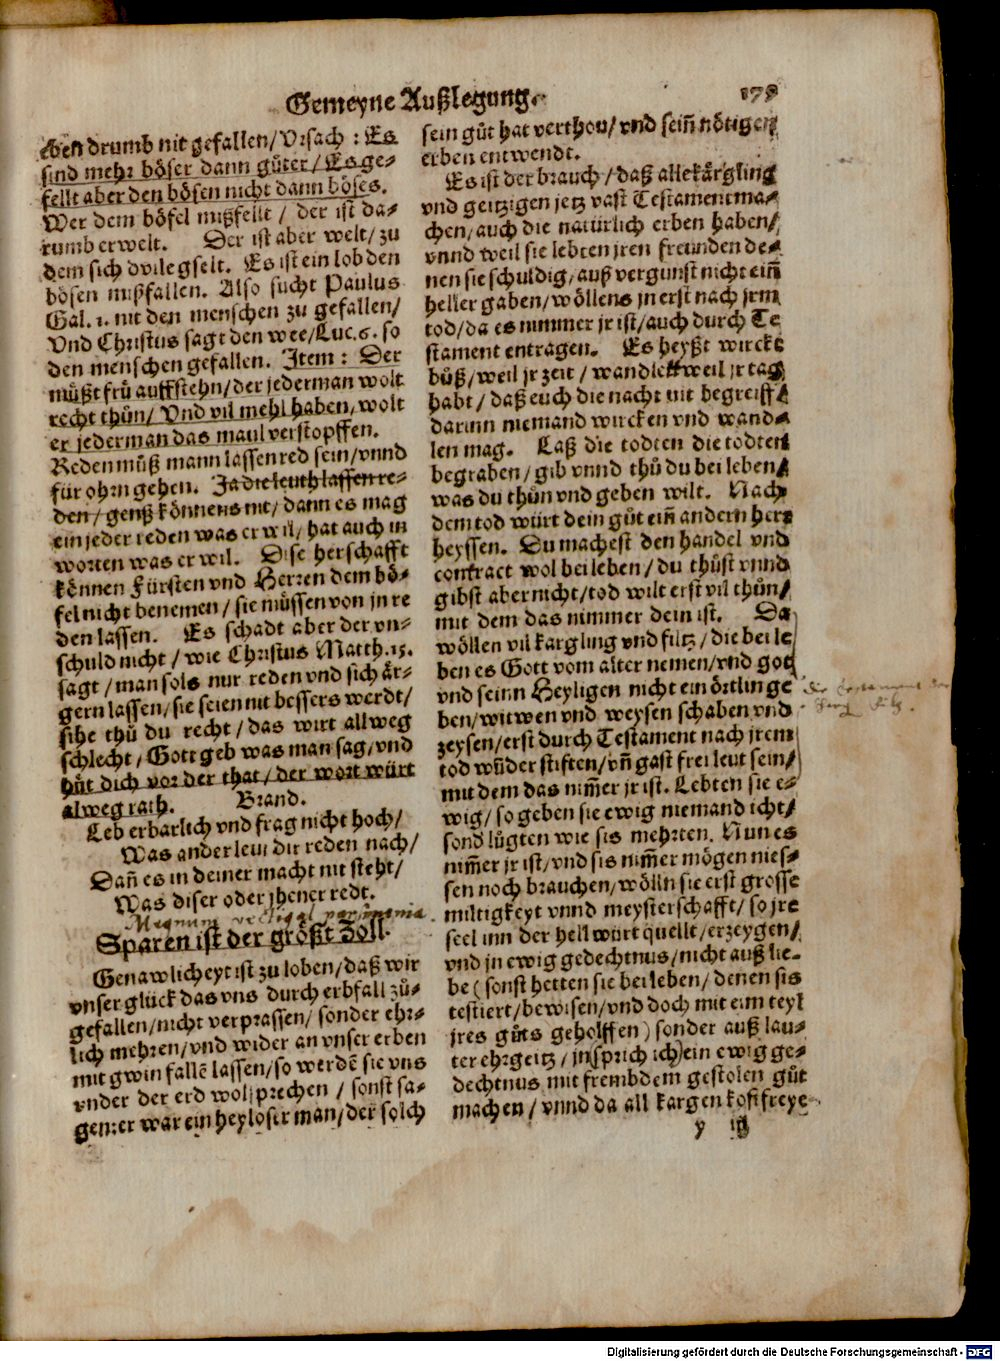 Gemeyne Außlegung. 179
eben drumb nit gefallen / Vrsach : Es
sind mehr böser dann gůter / Es ge-
fellt aber den bösen nicht dann böses.
Wer dem böfel mißfellt / der ist da-
rumb erwelt. Der ist aber welt / zu
dem sich dvile gselt. Es ist ein lob den
bösen mißfallen. Also sucht Paulus
Gal. 1. nit den menschen zu gefallen /
Vnd Christus sagt den wee / Luc. 6. so
den menschen gefallen. Item : Der
můßt frů auffstehn / der jederman wolt
recht thůn / Vnd vil mehl haben / wolt
er jederman das maul verstopffen.
Reden můß mann lassen red sein / vnnd
für ohrn gehen. Ja die leuth lassen re-
den / genß könnens nit / dann es mag
ein jeder reden was er wil / hat auch in
worten was er wil. Dise herschafft
können Fürsten vnd Herren dem bö-
fel nicht benemen / sie můssen von jn re
den lassen. Es schadt aber der vn-
schuld nicht / wie Christus Matth. 15.
sagt / man sols nur reden vnd sich är-
gern lassen / sie seien nit bessers werdt /
sihe thů du recht / das wirt allweg
schlecht / Gott geb was man sag / vnd
hůt dich vor der that / der wort würt
alweg rath. Brand.
Leb erbarlich vnd frag nicht hoch /
Was ander leut dir reden nach /
Dañ es in deiner macht nit steht /
Was diser oder jhener redt.
Magnum vectigal parsimonia.
Sparen ist der größt Zoll.
Genawlicheyt ist zu loben / daß wir
vnser glück das vns durch erbfall zů-
gefallen / nicht verprassen / sonder ehr-
lich mehren / vnd wider an vnser erben
mit gwin fallē lassen / so werdē sie vns
vnder der erd wol sprechen / sonst sa-
gen : er war ein heyloser man / der solch
sein gůt hat verthon / vnd seiñ nötigen
erben entwendt.
Es ist der brauch / daß alle kärgling
vnd geitzigen jetz vast Testament ma-
chen / auch die natürlich erben haben /
vnnd weil sie lebten jren freunden de-
nen sie schuldig / auß vergunst nicht eiñ
heller gaben / wöllens jn erst nach jrm
tod / da es nimmer jr ist / auch durch Te
stament entragen. Es heyßt wirckt
bůß / weil jr zeit / wandlet weil jr tag
habt / daß euch die nacht nit begreiff /
darinn niemand wircken vnd wand-
len mag. Laß die todten die todten
begraben / gib vnnd thů du bei leben /
was du thůn vnd geben wilt. Nach
dem tod würt dein gůt eiñ andern herr
heyssen. Du machest den handel vnd
contract wol bei leben / du thůst vnnd
gibst aber nicht / tod wilt erst vil thůn /
mit dem das nimmer dein ist. Da
wöllen vil kargling vnd filtz / die bei le
ben es Gott vom alter nemen / vnd got
vnd seinn Heyligen nicht ein örtlin ge
ben / witwen vnd weysen schaben vnd
zeysen / erst durch Testament nach jrem
tod wūder stiften / vñ gast frei leut sein /
mit dem das nim̃er jr ist. Lebten sie e-
wig / so geben sie ewig niemand icht /
sond lůgten wie sis mehrten. Nun es
nim̃er jr ist / vnd sis nim̃er mögen nies-
sen noch brauchen / wölln sie erst grosse
miltigkeyt vnnd meysterschafft / so jre
seel inn der hell würt quellt / erzeygen /
vnd jn ewig gedechtnus / nicht auß lie-
be ( sonst hetten sie bei leben / denen sis
testiert / bewisen / vnd doch mit eim teyl
jres gůts geholffen ) sonder auß lau-
ter ehrgeitz / jn ( sprich ich ) ein ewig ge-
dechtnus mit frembdem gestolen gůt
machen / vnnd da all kargen kost freye
y iij
Digitalisierung gefördert durch die Deutsche Forschungsgemeinschaft - DFG